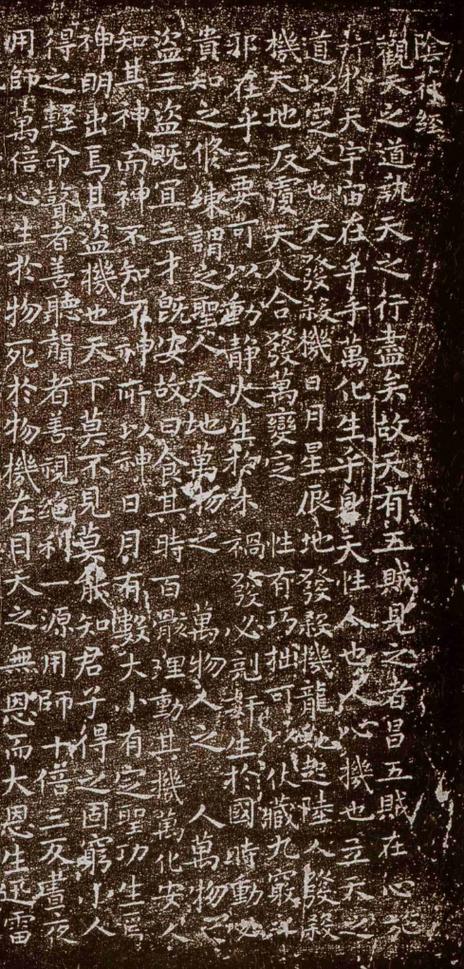 陰符經
觀天之道執天之行盡矣故天有五賊見之者昌五賊在心施
行於天宇宙在乎手萬化生乎身天性人也人心機也立天之
道以定人也天發殺機日月星辰地發殺機龍蛇起陸人發殺
機天地反覆天人合發萬變定 性有巧拙可以伏藏九竅之
邪在乎三要可以動靜火生於木禍發必剋奸生於國時動必
潰知之修練謂之聖人天地萬物之 萬物人之 人萬物之
盜三盜既宜三才既安故曰食其時百骸理動其機萬化安人
知其神而神不知不神所以神日月有數大小有定聖功生焉
神明出焉其盜機也天下莫不見莫能知君子得之固窮小人
得之輕命瞽者善聽聾者善視絕利一源用師十倍三反晝夜
用師萬倍心生於物死於物機在目天之無恩而大恩生迅雷